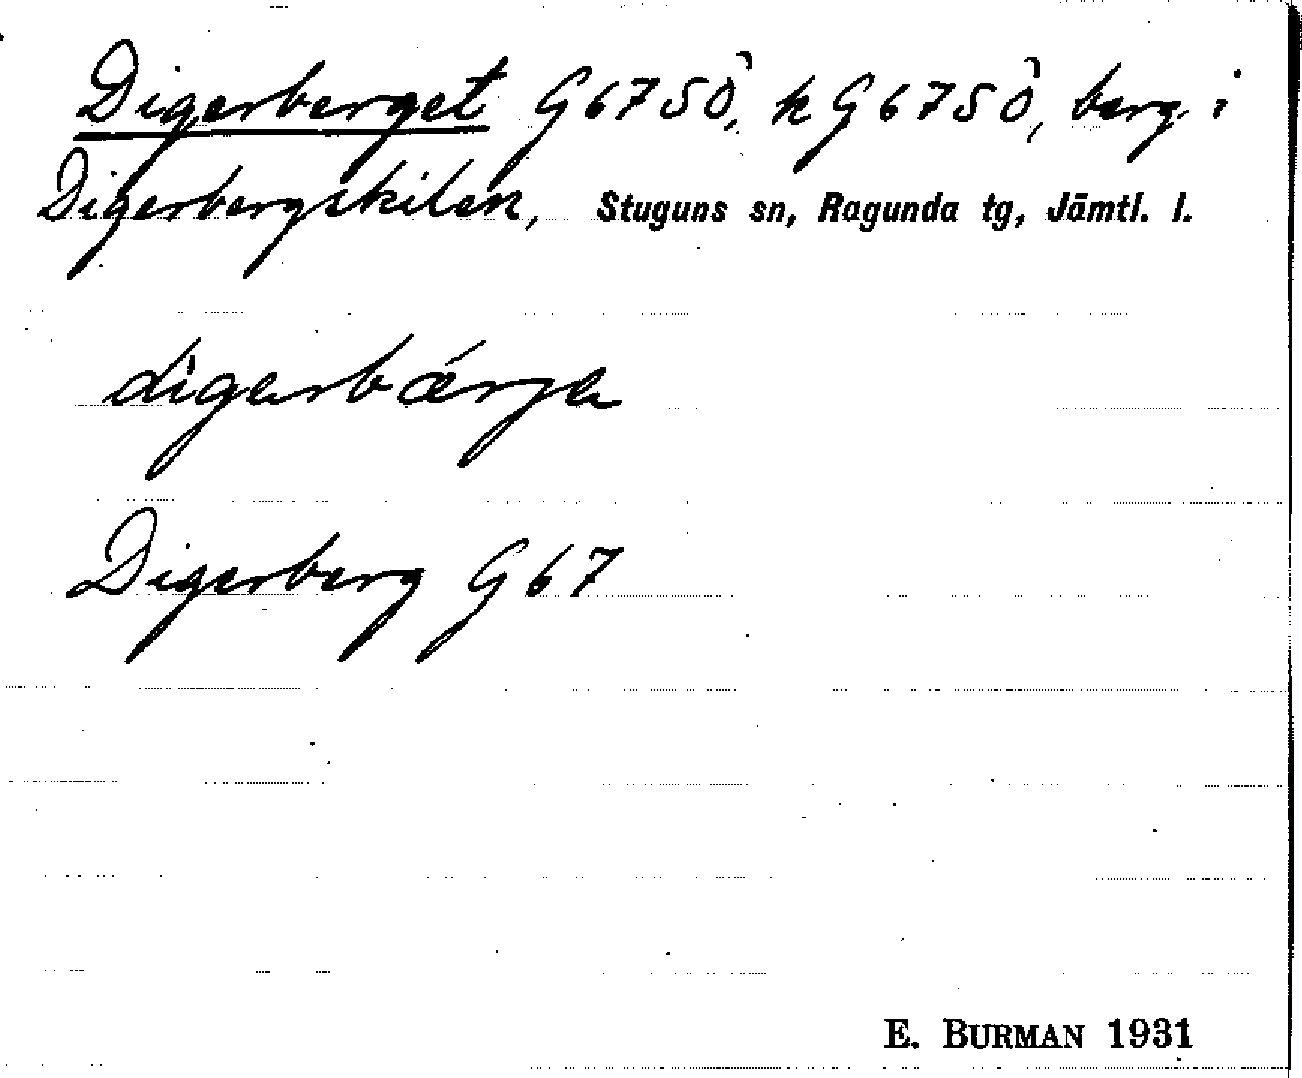 Digerberget G67SÖ, k G67SÖ, berg i
Digerbergskilen, Stuguns sn, Ragunda tg, Jämtl. l.
digerbærje
Digerberg G67
E. BURMAN 1931